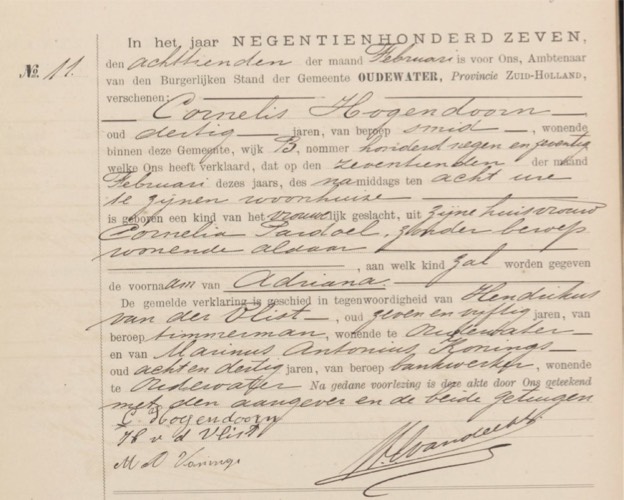 In het jaar NEGENTIENHONDERD ZEVEN,
No. 11. den achttienden der maand Februari is voor Ons, Ambtenaar
van den Burgerlijken Stand der Gemeente OUDEWATER, Provincie ZUID-HOLLAND,
verschenen:
Cornelis Hogendoorn
oud dertig jaren, van beroep smid, wonende
binnen deze Gemeente, wijk B, nommer honderd negen en zeventig
welke Ons heeft verklaard, dat op den zeventienden der maand
Februari dezes jaars, des namiddags ten acht ure
te zijnen woonhuize
is geboren een kind van het vrouwelijk geslacht, uit zijne huisvrouw
Cornelia Pardoel, zonder beroep
wonende aldaar
, aan welk kind zal worden gegeven
de voornaam van Adriana.
De gemelde verklaring is geschied in tegenwoordigheid van Hendrikus
van der Vlist, oud zeven en vijftig jaren, van
beroep timmerman, wonende te Oudewater
en van Marinus Antonius Konings
oud acht en dertig jaren, van beroep bankwerker, wonende
te Oudewater Na gedane voorlezing is deze akte door Ons geteekend
met den aangever en de beide getuigen
C. Hogendoorn
H v d Vlist
M A Konings